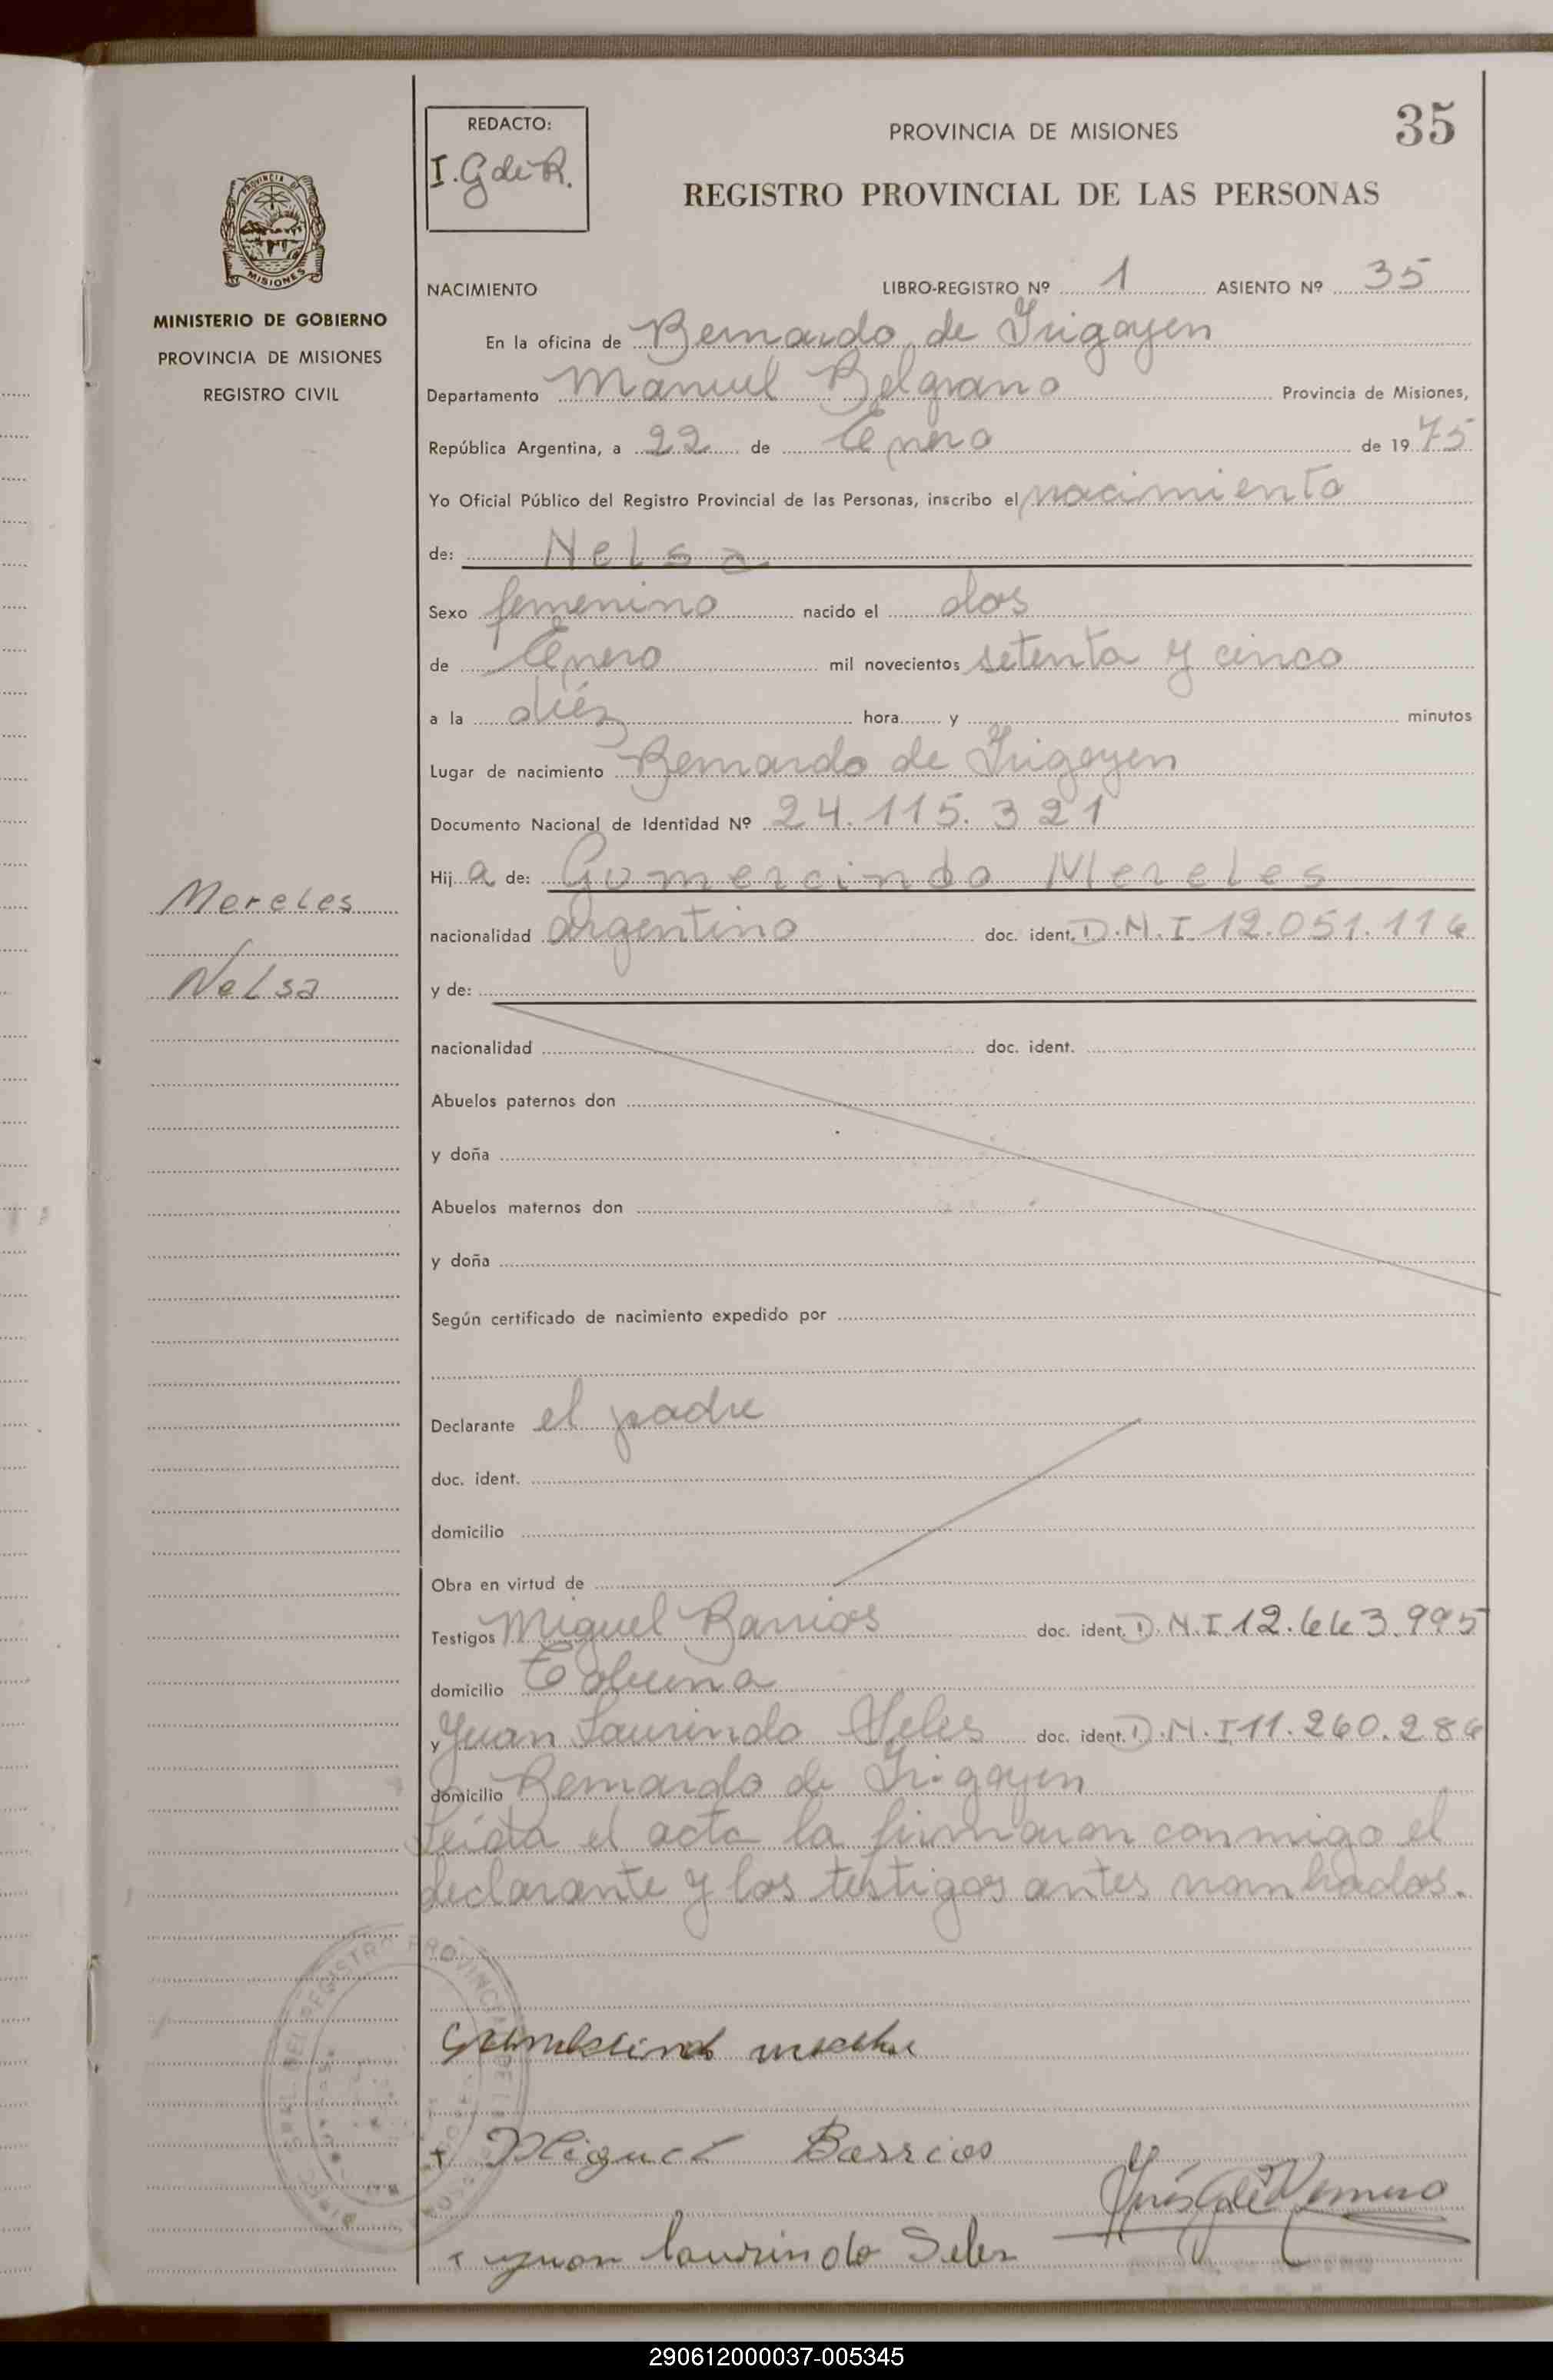 35
REDACTO:
I. G de R.
PROVINCIA DE MISIONES
REGISTRO PROVINCIAL DE LAS PERSONAS
MISIONES
MINISTERIO DE GOBIERNO
PROVINCIA DE MISIONES
REGISTRO CIVIL
NACIMIENTO LIBRO-REGISTRO Nº 1 ASIENTO Nº 35
En la oficina de Bernardo de Irigoyen
Departamento Manuel Belgrano Provincia de Misiones,
República Argentina, a 22 de Enero de 1975
Yo Oficial Público del Registro Provincial de las Personas, inscribo el nacimiento
de: Nelsa
Sexo femenino nacido el dos
de Enero mil novecientos setenta y cinco
a la diéz hora y minutos
Lugar de nacimiento Bernardo de Irigoyen
Documento Nacional de Identidad Nº 24.115.321
Hij a de: Gumercindo Mereles
Mereles
nacionalidad argentino doc. ident. D.N.I 12.051.116
Nelsa
y de:
nacionalidad doc. ident.
Abuelos paternos don
y doña
Abuelos maternos don
y doña
Según certificado de nacimiento expedido por
Declarante el padre
doc. ident.
domicilio
Obra en virtud de
Testigos Miguel Barrios doc. ident. D.N.I 12.663.995
domicilio
y Juan Laurindo Seles doc. ident. D.N.I 11.260.286
domicilio Bernardo de Irigoyen
Leída el acta la firmaron conmigo el
declarante y los testigos antes nombrados.
Miguel Barrios
Juan laurindo Seles
290612000037-005345